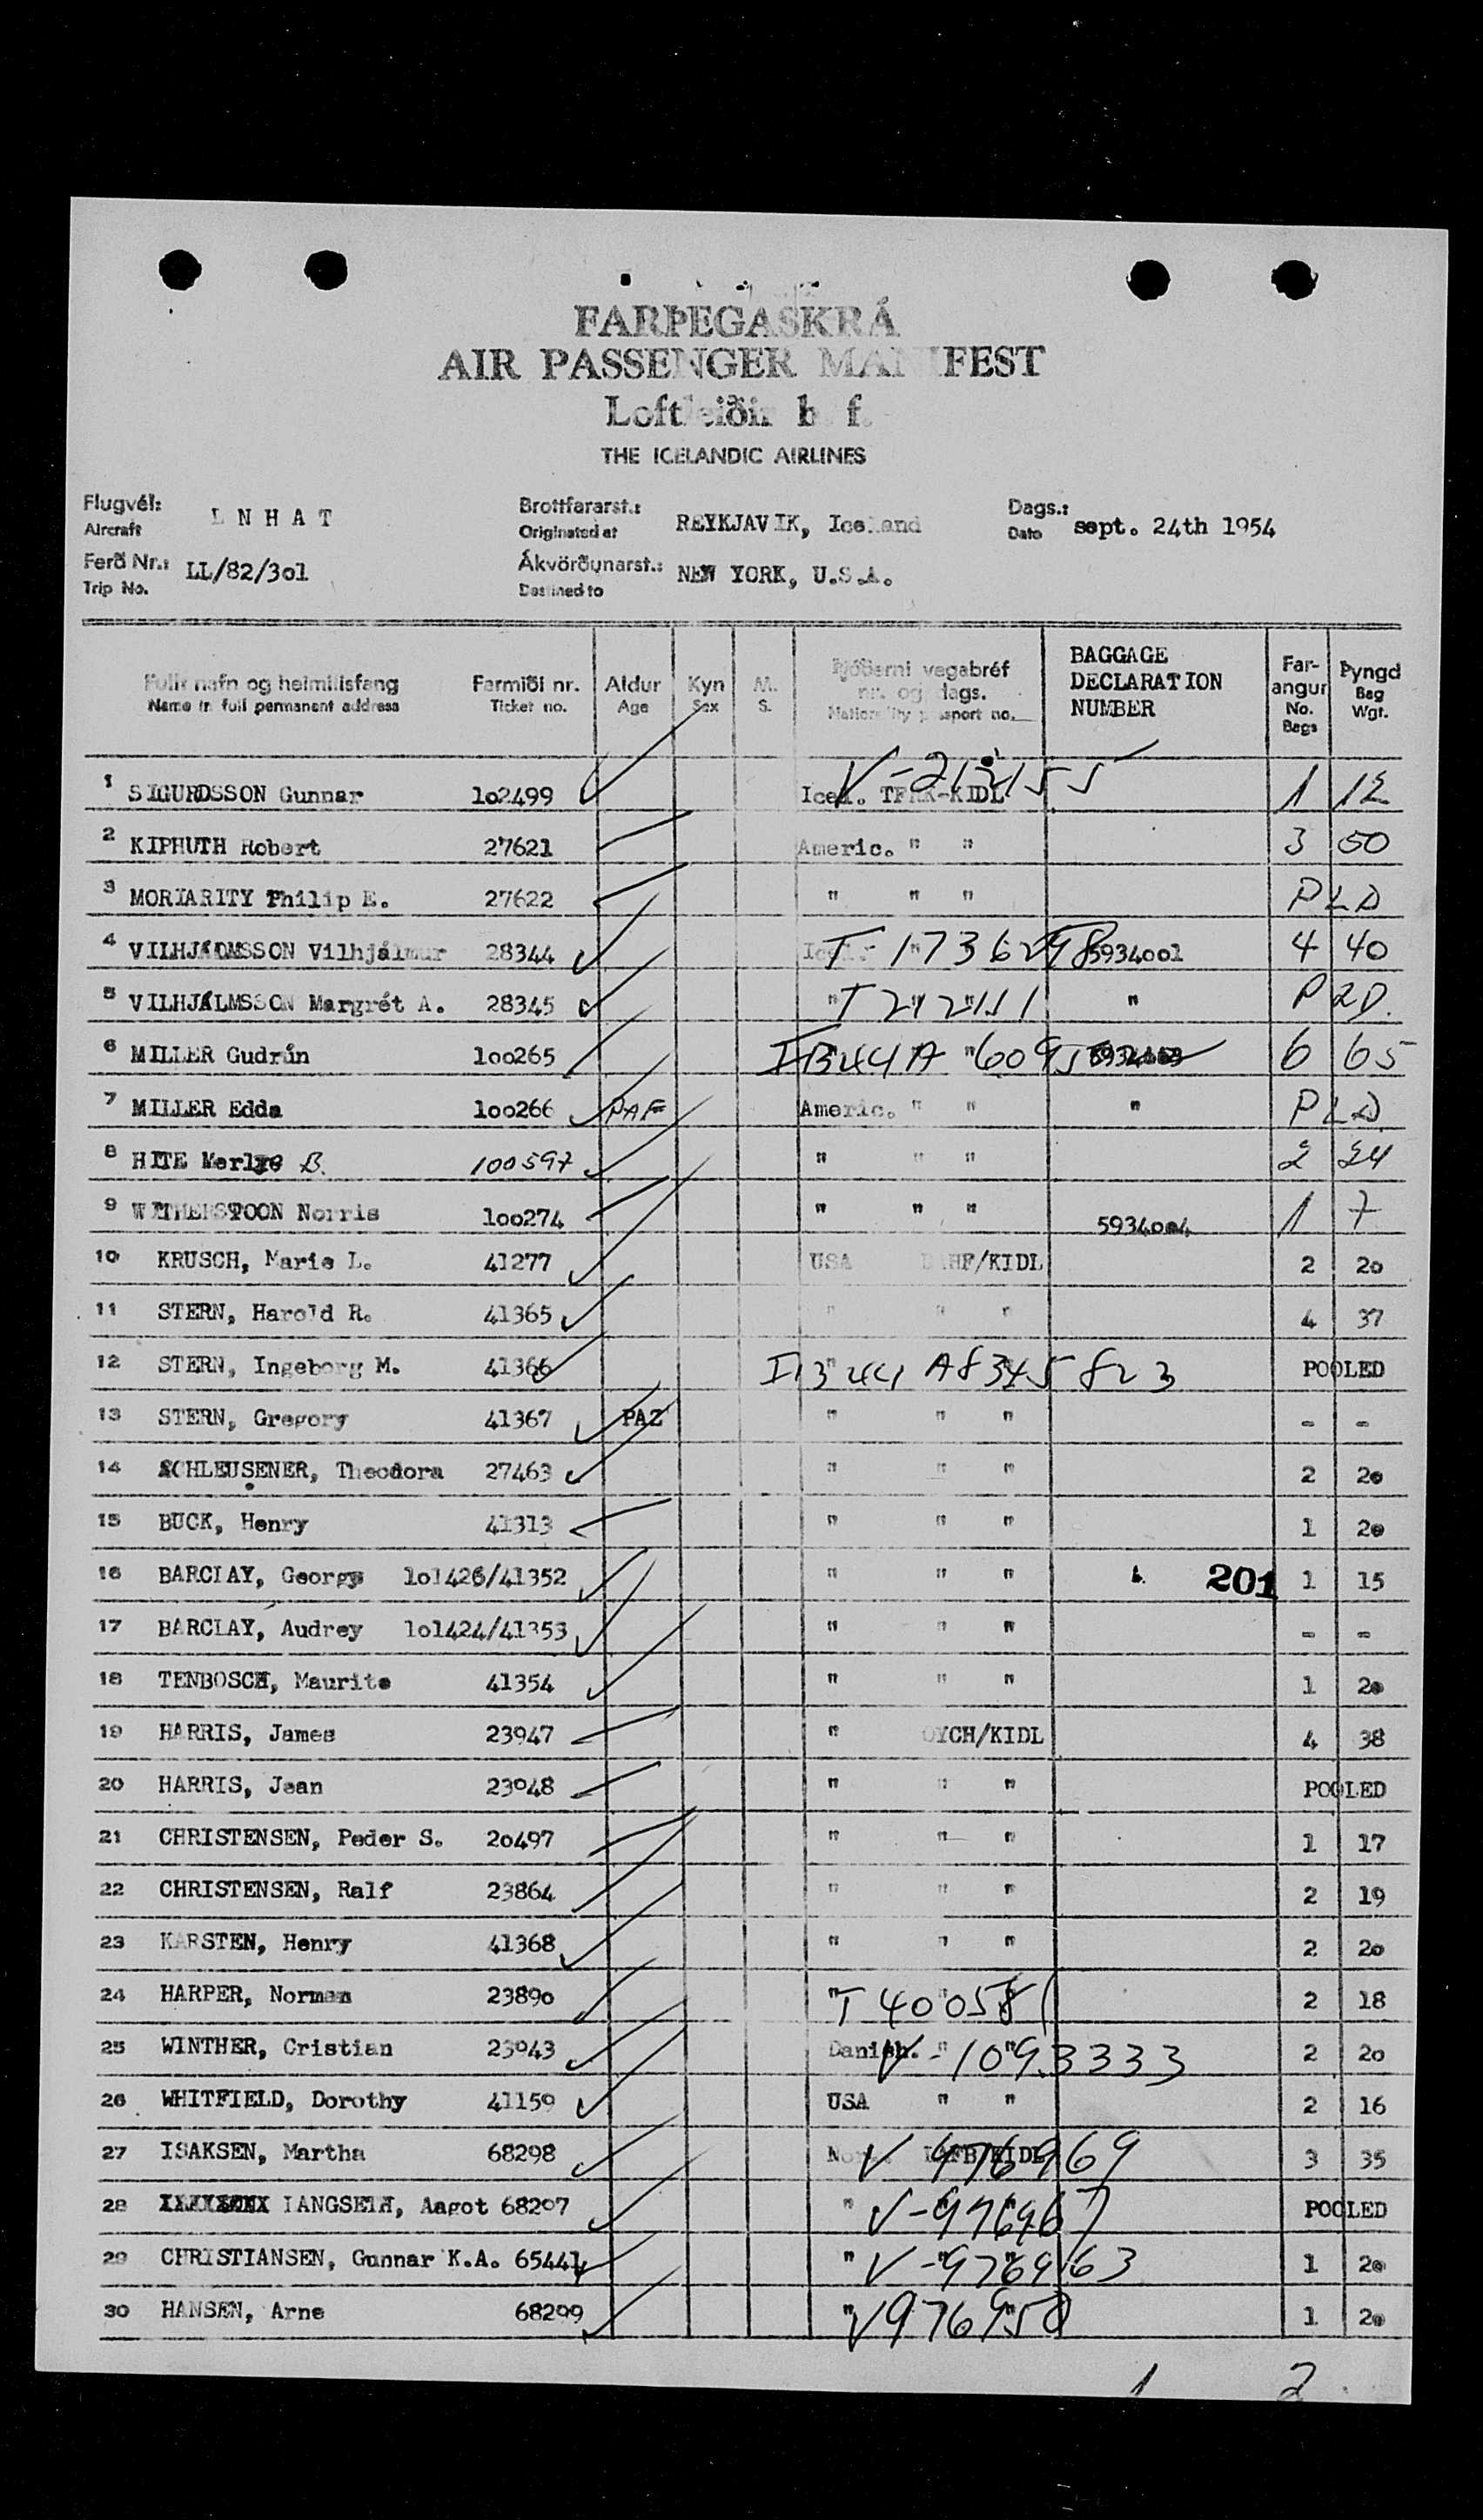 FARÞEGASKRÁ
AIR PASSENGER MANIFEST
Loftleiðir h. f.
THE ICELANDIC AIRLINES
Flugvél: Aircraft L N H A T Brottfararst.: Originated at REYKJAVIK, Iceland Dags.: Date sept. 24th 1954
Ferð Nr.: Trip No. LL/82/3o1 Ákvörðunarst.: Destined to NEW YORK, U.S.A.
Fullt nafn og heimilisfang Farmiði nr. Aldur Kyn M. Þjóðerni vegabréf nr. og dags. BAGGAGE DECLARATION NUMBER Far-angur Þyngd
Name in full permanent address Ticket no. Age Sex S. Nationality passport no. No. Bags Bag Wgt.
1 SIGURDSSON Gunnar 1o2499 Icel. TFRK-KIDL V-212155 1 12
2 KIPHUTH Robert 27621 Americ. " " 3 50
3 MORIARITY Philip E. 27622 " " " PLD
4 VILHJÁLMSSON Vilhjálmur 28344 5934oo1 4 40
5 VILHJÁLMSSON Margrét A. 28345 " T 212111 " P2D.
6 MILLER Gudrún 1oo265 6 65
7 MILLER Edda 1oo266 PAF Americ. " " " PLD
8 HITE B. 100597 " " " 2 24
9 Norris 1oo274 " " " 5934oo4 1 7
10 KRUSCH, Marie L. 41277 USA /KIDL 2 2o
11 STERN, Harold R. 41365 " " " 4 37
12 STERN, Ingeborg M. 41366 I1344 A8345823 POOLED
13 STERN, Gregory 41367 PAZ " " " - -
14 SCHLEUSENER, Theodora 27463 " " " 2 2o
15 BUCK, Henry 41313 " " " 1 2o
16 BARCLAY, George 1o1426/41352 " " " 201 1 15
17 BARCLAY, Audrey 1o1424/41353 " " " - -
18 TENBOSCH, Maurits 41354 " " " 1 2o
19 HARRIS, James 23947 " OYCH/KIDL 4 38
20 HARRIS, Jean 23948 " " " POOLED
21 CHRISTENSEN, Peder S. 2o497 " " " 1 17
22 CHRISTENSEN, Ralf 23864 " " " 2 19
23 KARSTEN, Henry 41368 " " " 2 2o
24 HARPER, Norman 2389o " T 4000581 2 18
25 WINTHER, Cristian 23943 Danish. " " V-1093333 2 2o
26 WHITFIELD, Dorothy 41159 USA " " 2 16
27 ISAKSEN, Martha 68298 V 976969 3 35
28 LANGSETH, Aagot 68297 " V-976967 POOLED
29 CHRISTIANSEN, Gunnar K.A. 65441 " V-976963 1 2o
30 HANSEN, Arne 68299 " V976950 1 2o
1 2